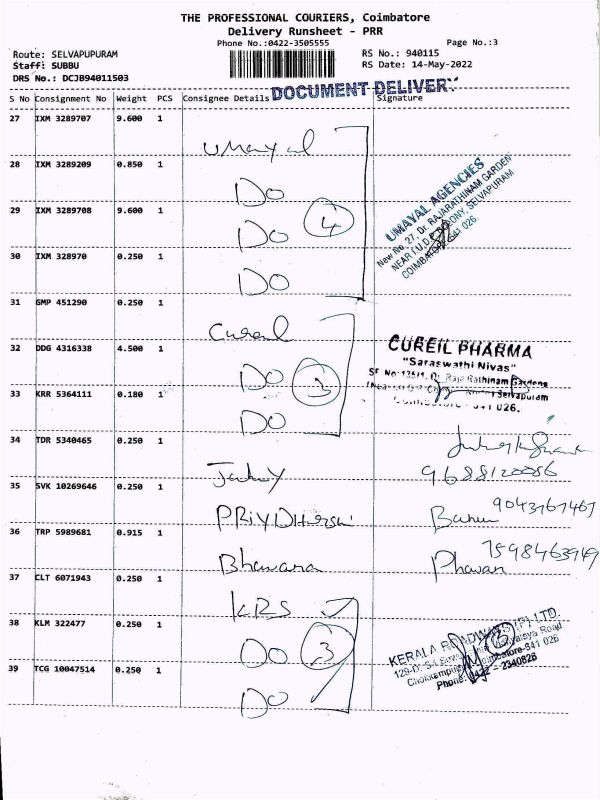 THE PROFESSIONAL COURIERS, Coimbatore
Delivery Runsheet - PRR
Phone No.:0422-3505555
Page No.:3
Route: SELVAPUPURAM
RS No.: 940115
Staff: SUBBU
RS Date: 14-May-2022
DRS No.: DCJB94011503
DOCUMENT DELIVERY
S No Consignment No Weight PCS Consignee Details Signature
27 IXM 3289707 9.600 1
Umayal
28 IXM 3289209 0.850 1
DO
29 IXM 3289708 9.600 1
DO
4
UMAYAL AGENCIES
New No. 27, Dr. RAJARATHINAM GARDEN
NEAR I.U.D. COLONY, SELVAPURAM
COIMBATORE 641 026.
30 IXM 328970 0.250 1
DO
31 GMP 451290 0.250 1
Cureil
32 DDG 4316338 4.500 1
DO
3
CUREIL PHARMA
"Saraswathi Nivas"
SF No:135/1, Dr. Raja Rathinam Gardens
Selvapuram
641 026.
33 KRR 5364111 0.180 1
DO
34 TDR 5340465 0.250 1
9688120086
35 SVK 10269646 0.250 1
PRIYDHarsni
9043767467
36 TRP 5989681 0.915 1
Bhavana
Phavan
7598463949
37 CLT 6071943 0.250 1
KRS
38 KLM 322477 0.250 1
DO
3
KERALA ROADWAYS (P) LTD.
Road
Coimbatore-641 026
Phone: 0422 - 2340826
39 TCG 10047514 0.250 1
DO